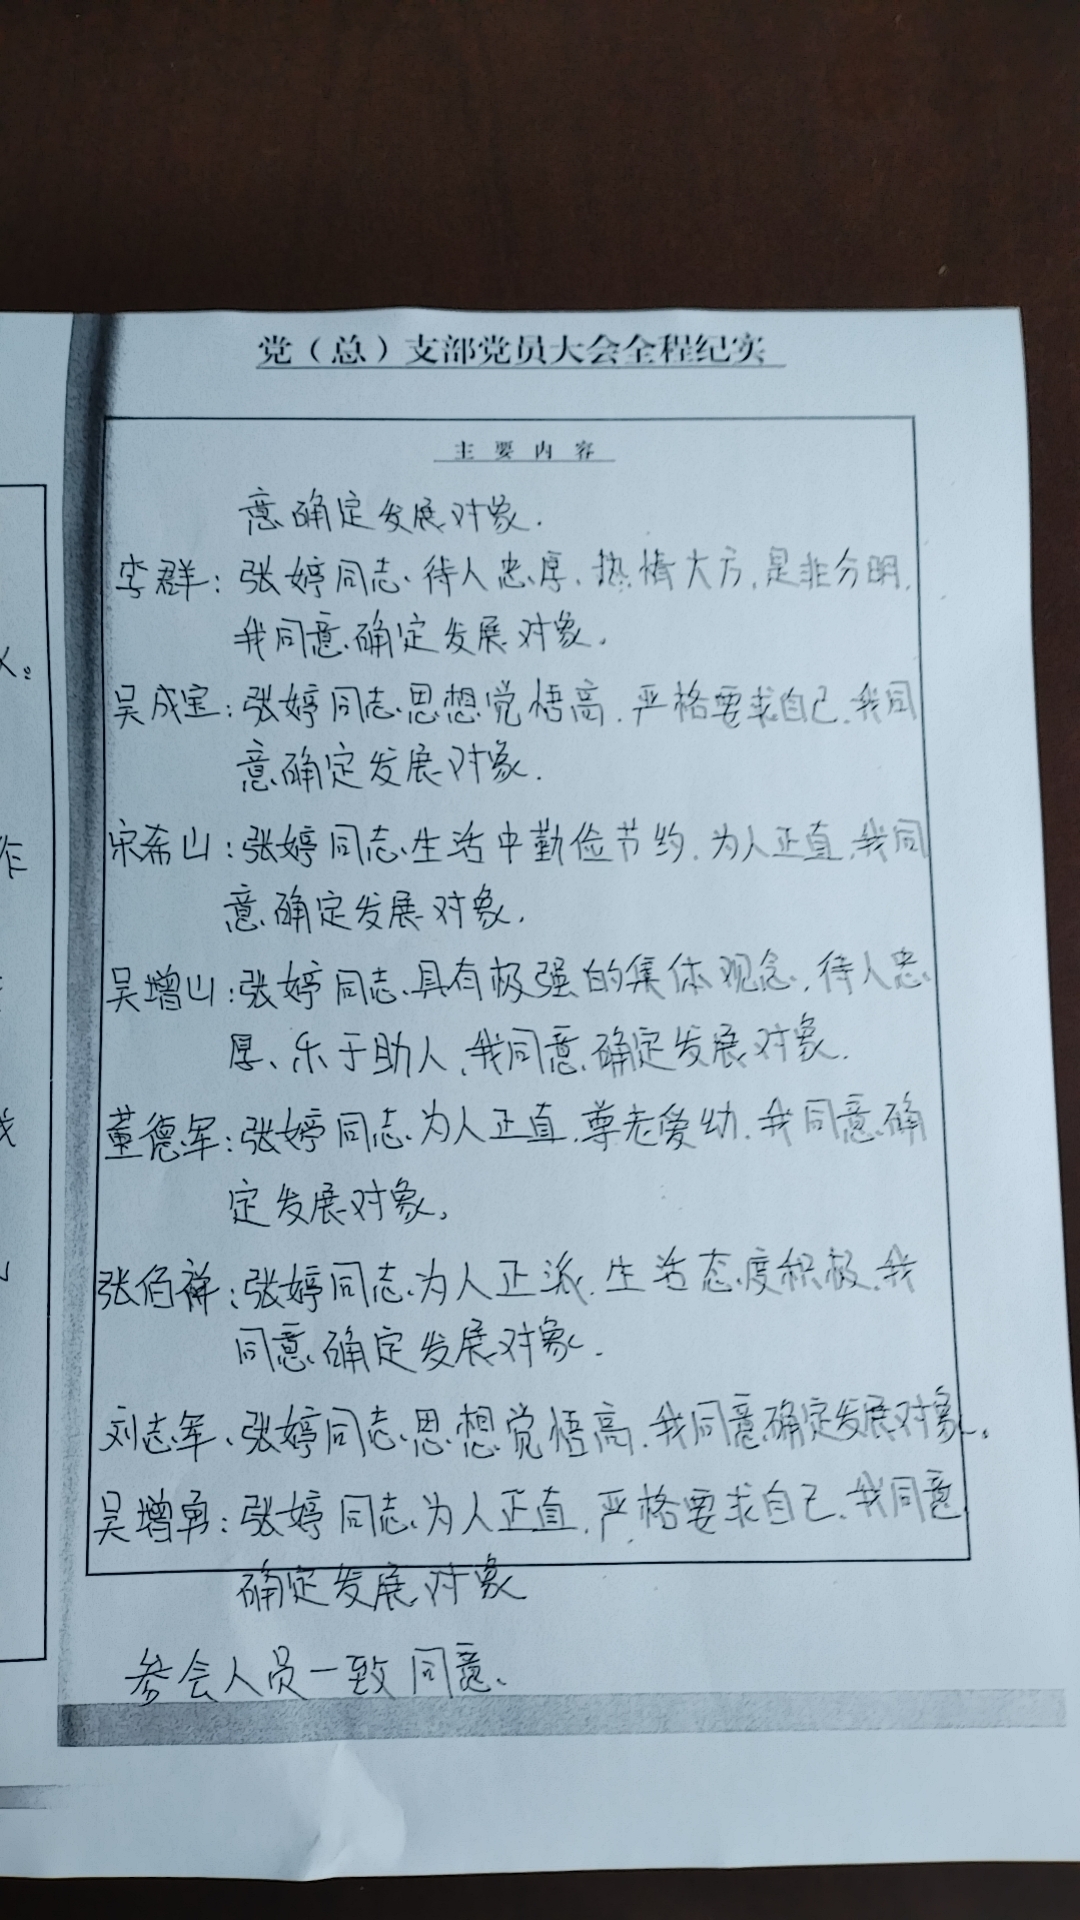 党（总）支部党员大会全程纪实
主要内容
意确定发展对象.
李群：张婷同志、待人忠厚、热情大方,是非分明,
我同意确定发展对象。
吴成宝：张婷同志思想觉悟高,严格要求自己,我同
意确定发展对象.
宋希山：张婷同志生活中勤俭节约,为人正直,我同
意确定发展对象.
吴增山：张婷同志具有极强的集体观念,待人忠
厚、乐于助人,我同意确定发展对象.
董德军：张婷同志为人正直,尊老爱幼,我同意确
定发展对象。
张伯祥：张婷同志为人正派,生活态度积极,我
同意确定发展对象.
刘志军、张婷同志思想觉悟高,我同意确定发展对象。
吴增勇：张婷同志为人正直,严格要求自己,我同意
确定发展对象
参会人员一致同意、